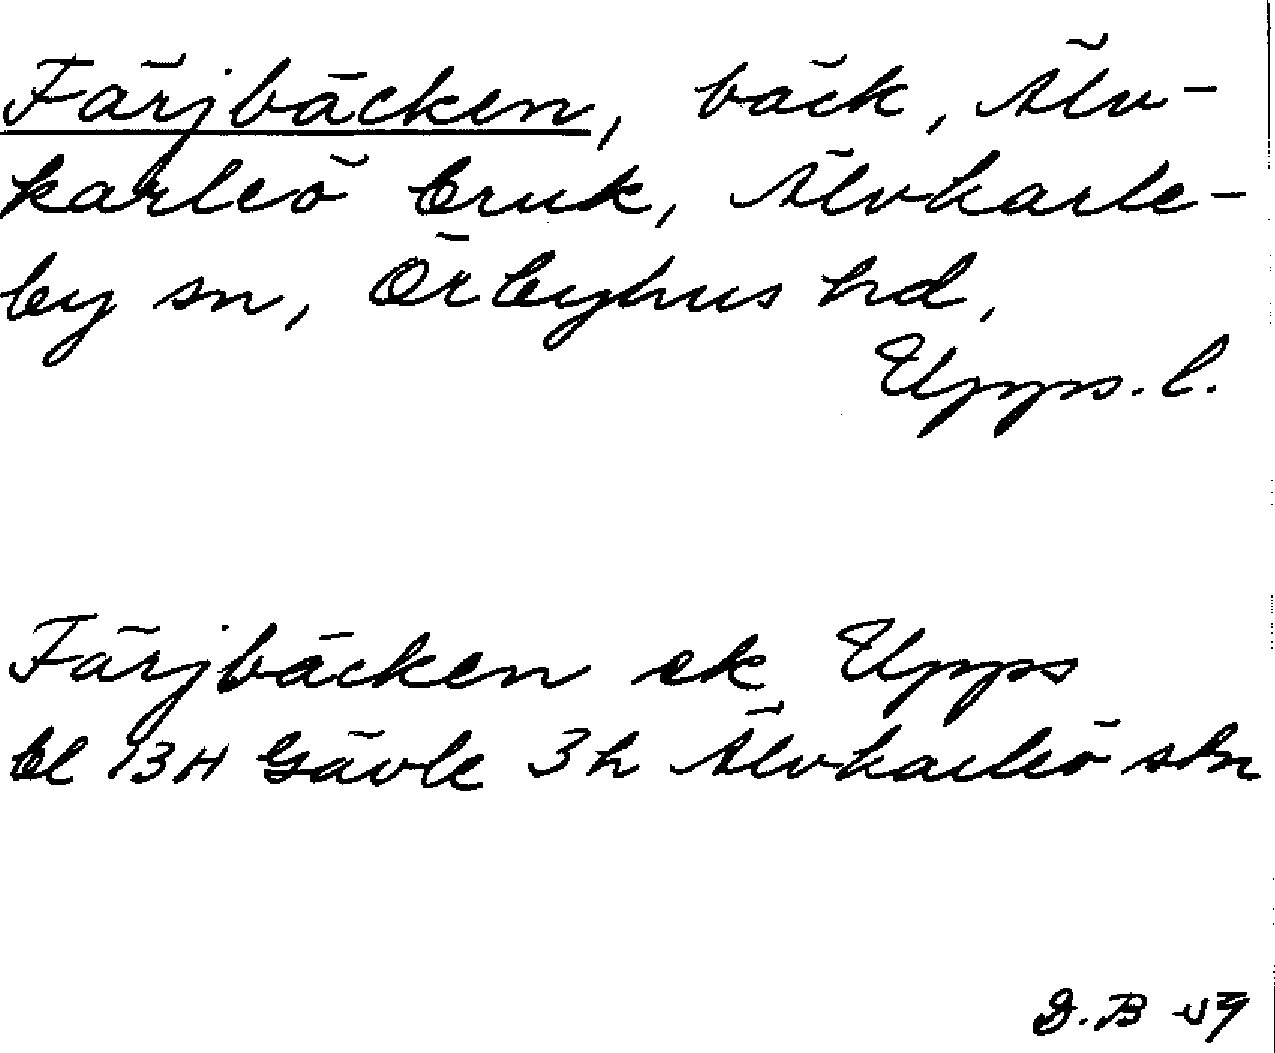 Färjbäcken, bäck, Älv-
karleö bruk, Älvkarle-
by sn, Örbyhus hd,
Upps. l.
Färjbäcken ek Upps
bl 13H Gävle 3h Älvkarleö sbn
D.B -49